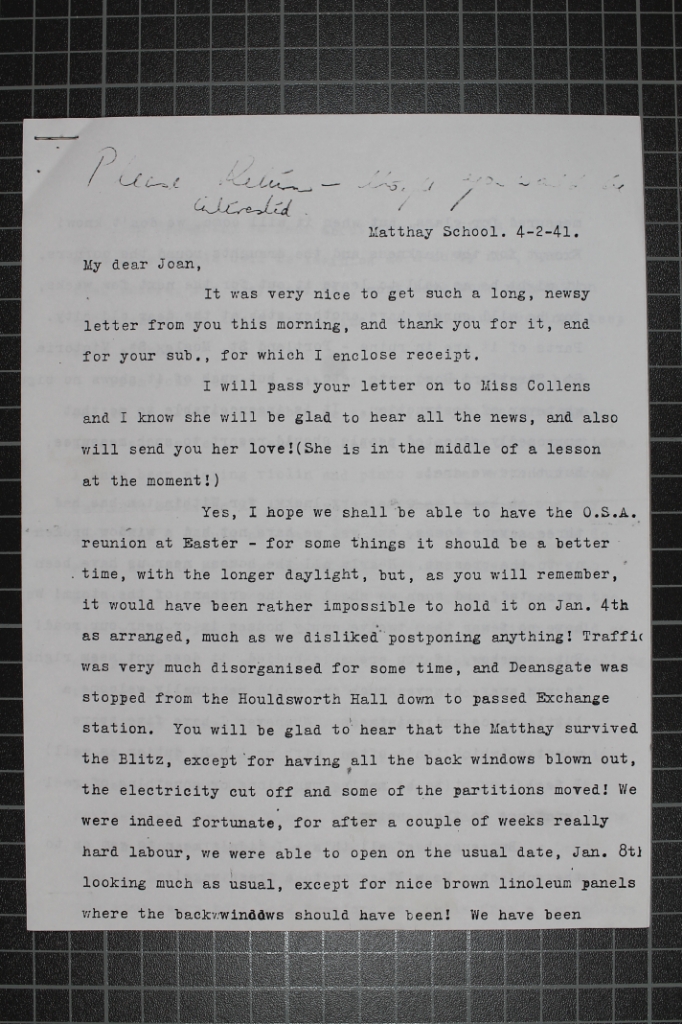 Please Return - thought you would be
interested.
Matthay School. 4-2-41.
My dear Joan,
It was very nice to get such a long, newsy
letter from you this morning, and thank you for it, and
for your sub., for which I enclose receipt.
I will pass your letter on to Miss Collens
and I know she will be glad to hear all the news, and also
will send you her love!(She is in the middle of a lesson
at the moment!)
Yes, I hope we shall be able to have the O.S.A.
reunion at Easter - for some things it should be a better
time, with the longer daylight, but, as you will remember,
it would have been rather impossible to hold it on Jan. 4th
as arranged, much as we disliked postponing anything! Traffic
was very much disorganised for some time, and Deansgate was
stopped from the Houldsworth Hall down to passed Exchange
station. You will be glad to hear that the Matthay survived
the Blitz, except for having all the back windows blown out,
the electricity cut off and some of the partitions moved! We
were indeed fortunate, for after a couple of weeks really
hard labour, we were able to open on the usual date, Jan. 8th
looking much as usual, except for nice brown linoleum panels
where the back windows should have been! We have been